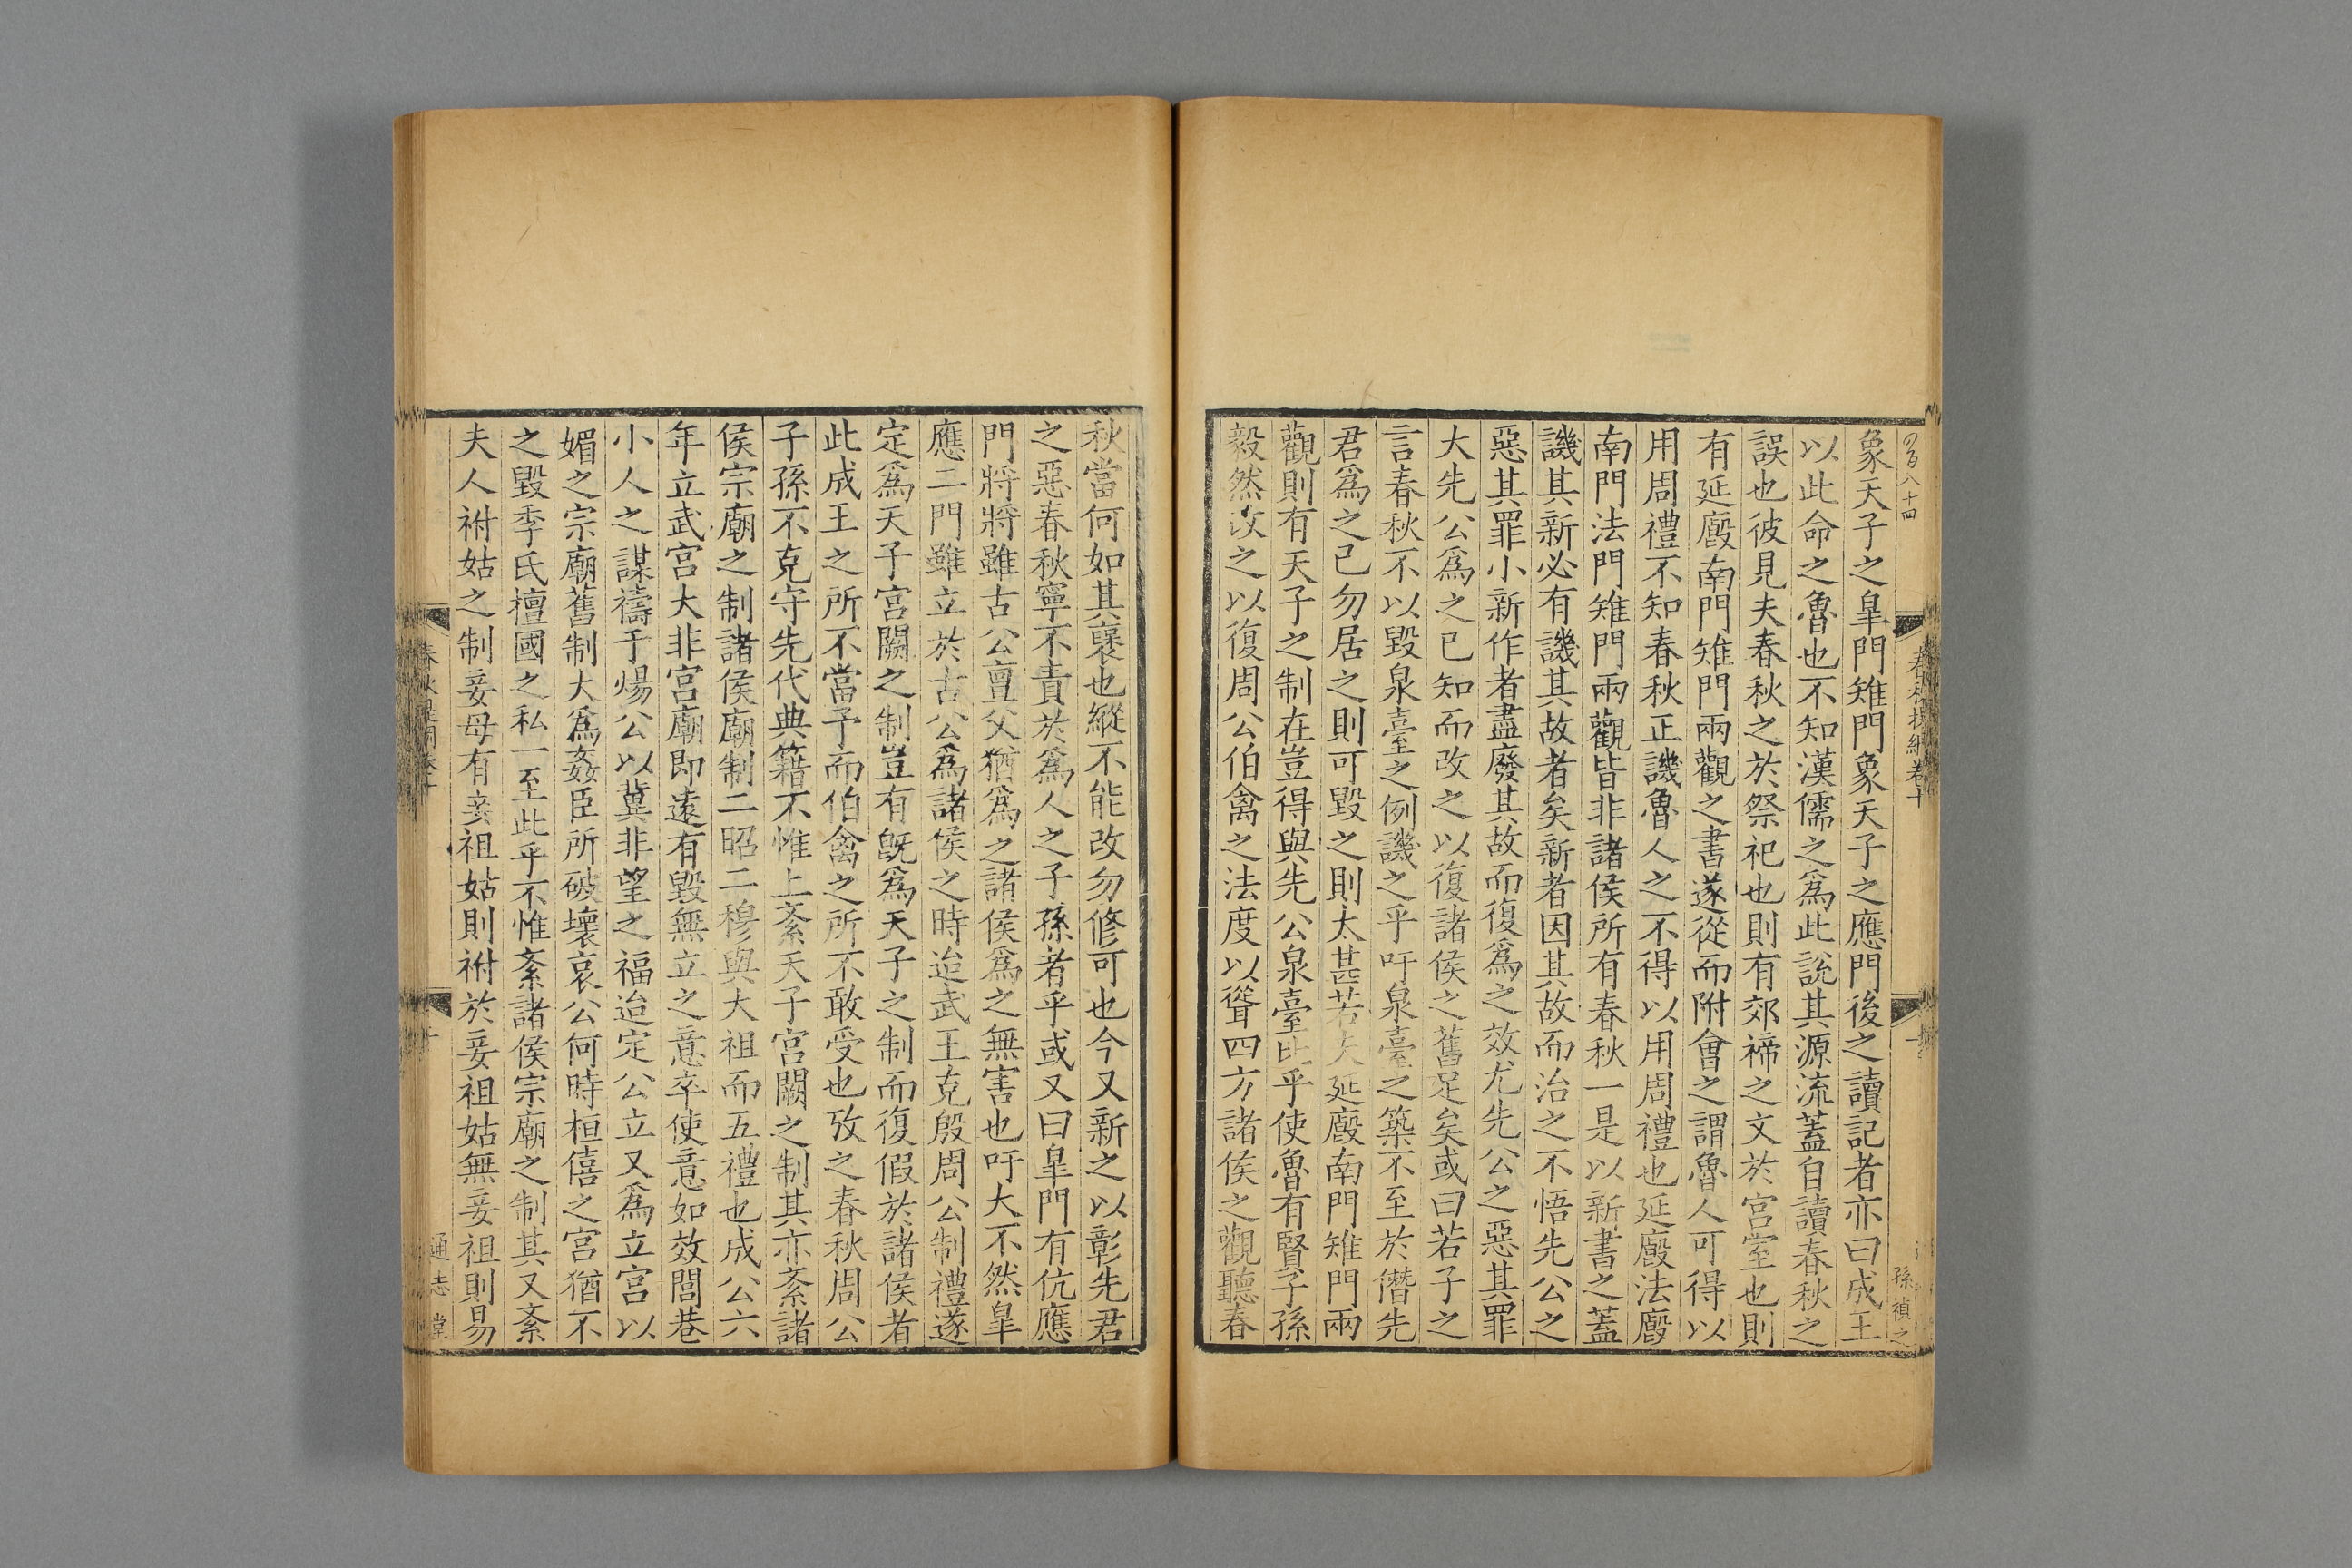 象天子之臯門雉門象天子之應門後之讀記者亦曰成王
以此命之魯也不知漢儒之爲此說其源流蓋自讀春秋之
誤也彼見夫春秋之於祭祀也則有郊禘之文於宮室也則
有延廏南門雉門兩觀之書遂從而附會之謂魯人可得以
用周禮不知春秋正譏魯人之不得以用周禮也延廏法廏
南門法門雉門兩觀皆非諸侯所有春秋一是以新書之蓋
譏其新必有譏其故者矣新者因其故而治之不悟先公之
惡其罪小新作者盡廢其故而復爲之效尤先公之惡其罪
大先公爲之已知而改之以復諸侯之舊足矣或曰若子之
言春秋不以毀泉臺之例譏之乎吁泉臺之築不至於僭先
君爲之已勿居之則可毀之則太甚若夫延廏南門雉門兩
觀則有天子之制在豈得與先公泉臺比乎使魯有賢子孫
毅然改之以復周公伯禽之法度以聳四方諸侯之觀聽春
秋當何如其襃也縱不能改勿修可也今又新之以彰先君
之惡春秋寧不責於爲人之子孫者乎或又曰臯門有伉應
門將將雖古公亶父猶爲之諸侯爲之無害也吁大不然臯
應二門雖立於古公爲諸侯之時迨武王克殷周公制禮遂
定爲天子宮闕之制豈有旣爲天子之制而復假於諸侯者
此成王之所不當予而伯禽之所不敢受也攷之春秋周公
子孫不克守先代典籍不惟上紊天子宮闕之制其亦紊諸
侯宗廟之制諸侯廟制二昭二穆與大祖而五禮也成公六
年立武宮大非宮廟即遠有毀無立之意卒使意如效閭巷
小人之謀禱于煬公以冀非望之福迨定公立又爲立宮以
媚之宗廟舊制大爲姦臣所破壞哀公何時桓僖之宮猶不
之毀季氏擅國之私一至此乎不惟紊諸侯宗廟之制其又紊
夫人祔姑之制妾母有妾祖姑則祔於妾祖姑無妾祖則易
通志堂